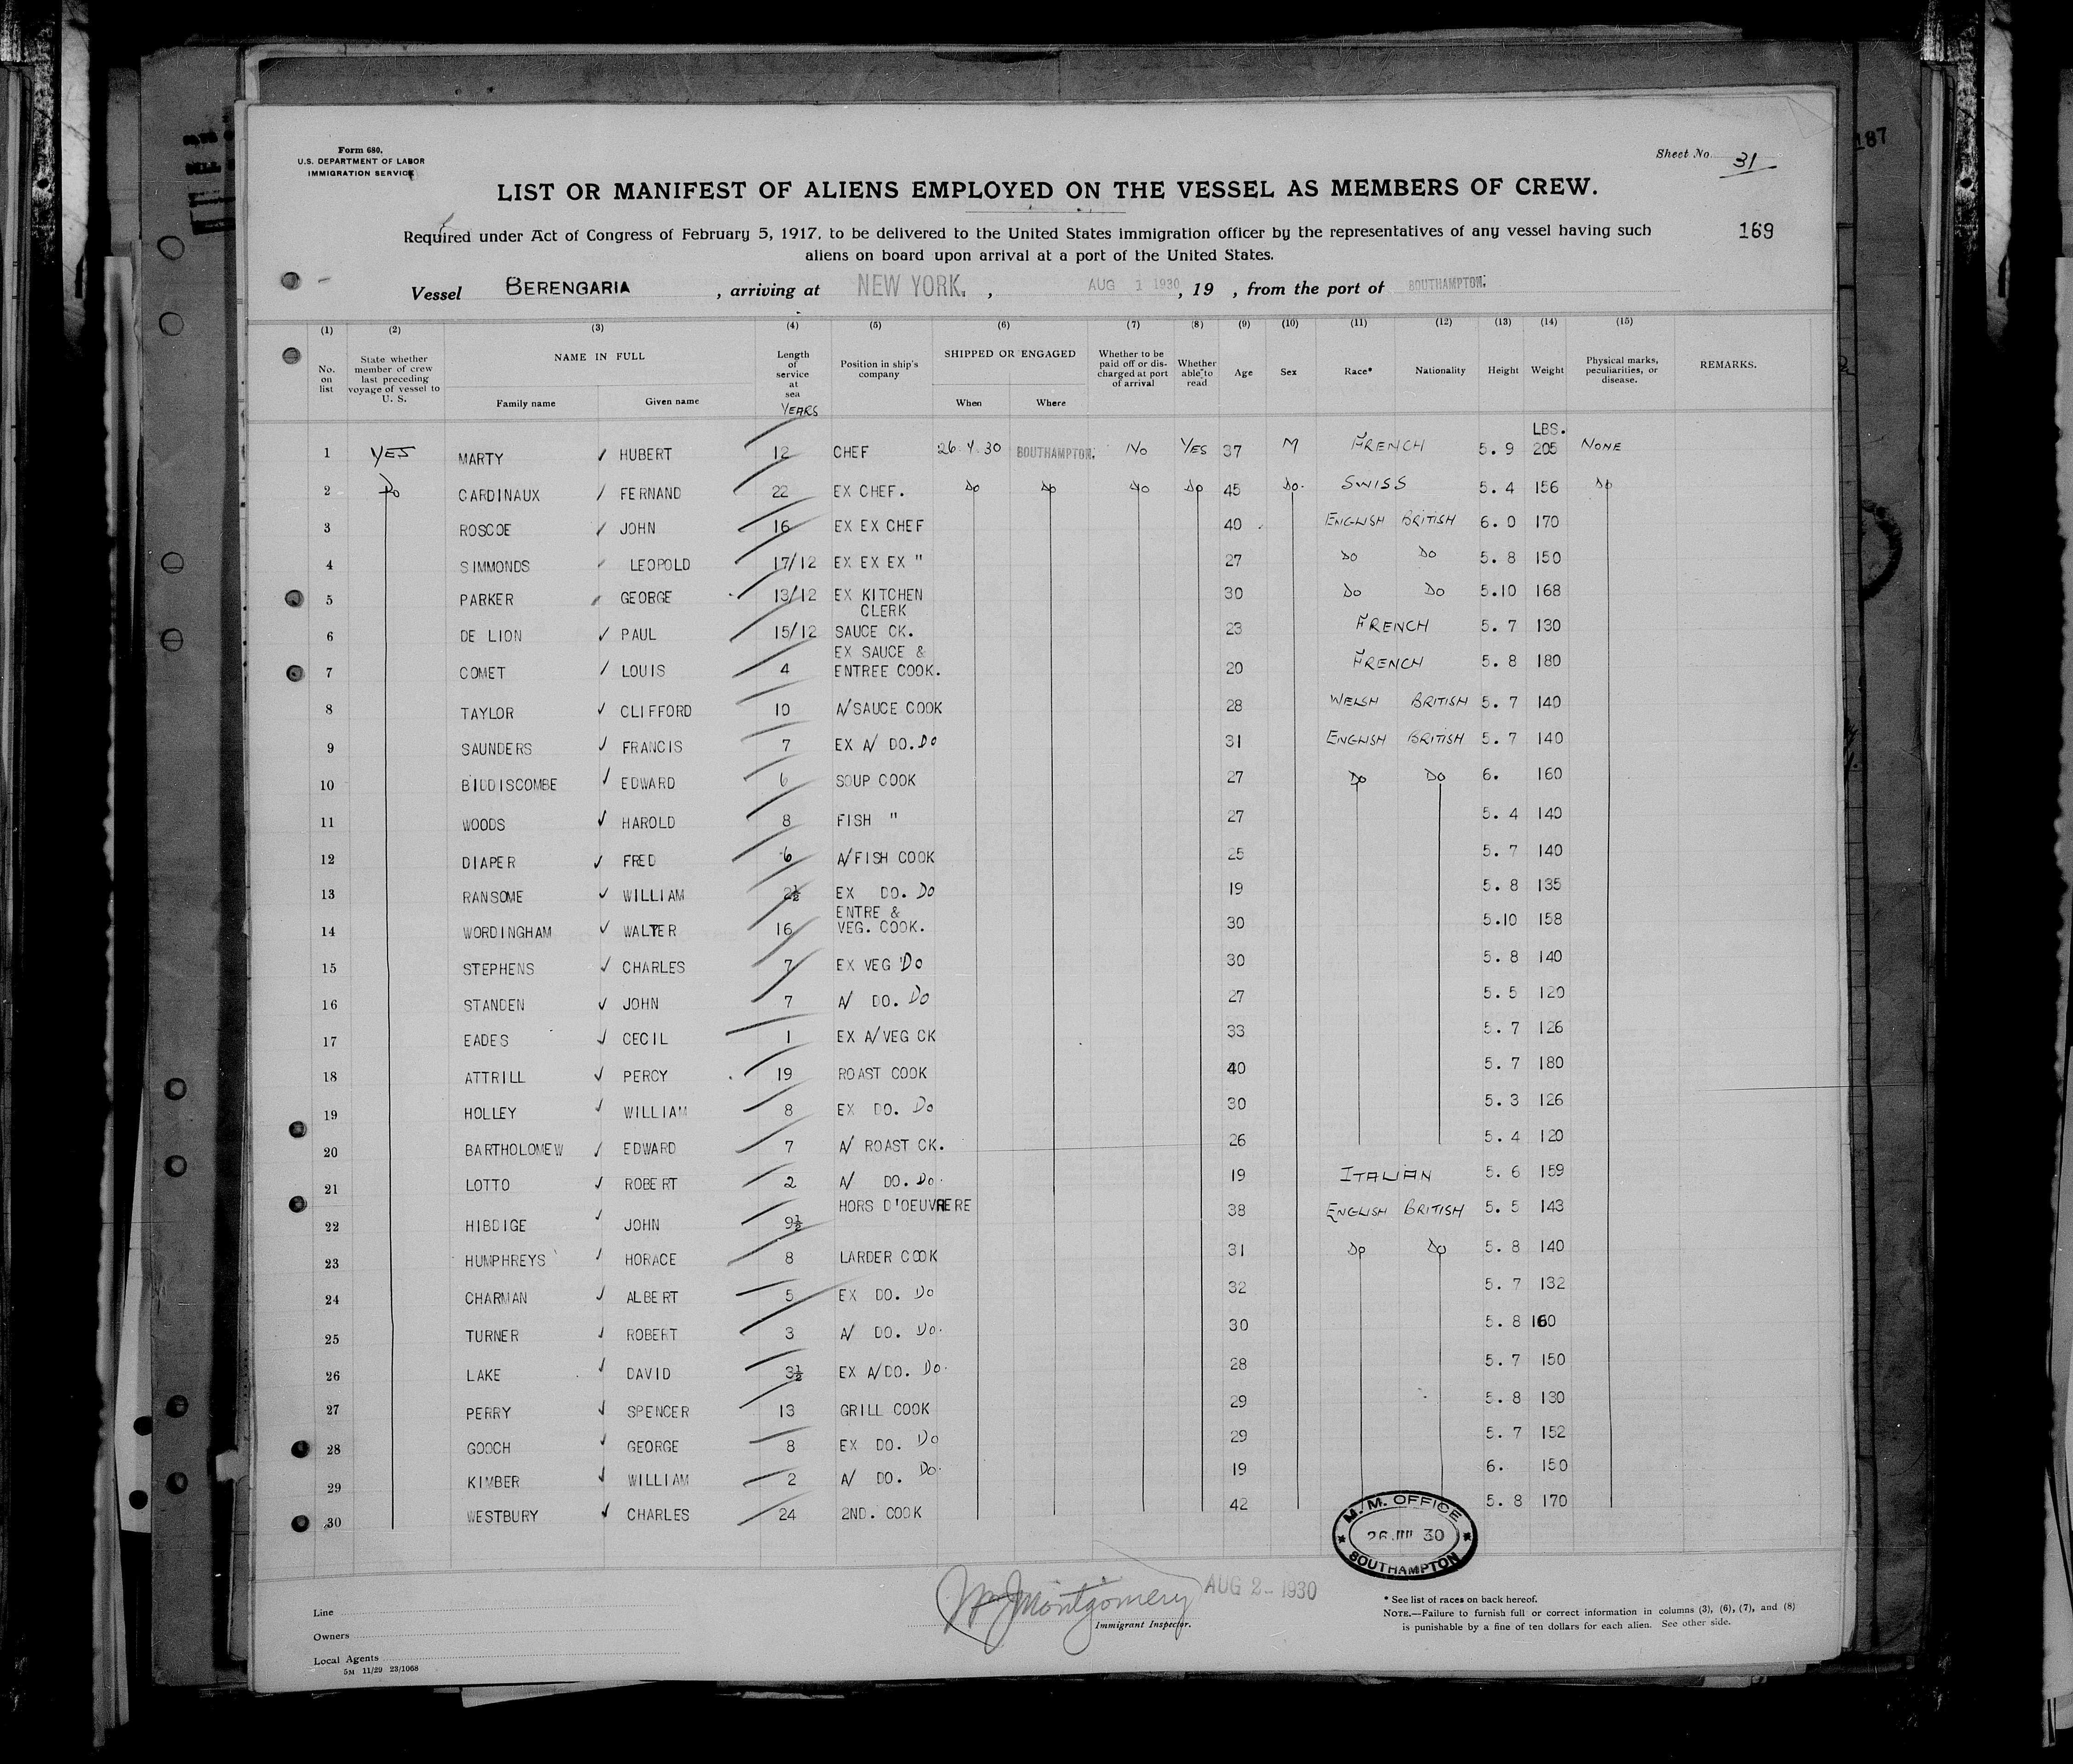 187
Form 680.
U.S. DEPARTMENT OF LABOR
IMMIGRATION SERVICE
Sheet No. 31
LIST OR MANIFEST OF ALIENS EMPLOYED ON THE VESSEL AS MEMBERS OF CREW.
Required under Act of Congress of February 5, 1917, to be delivered to the United States immigration officer by the representatives of any vessel having such
aliens on board upon arrival at a port of the United States.
169
Vessel BERENGARIA , arriving at NEW YORK. , AUG 1 1930 , 19 , from the port of SOUTHAMPTON.
(1) (2) (3) (4) (5) (6) (7) (8) (9) (10) (11) (12) (13) (14) (15)
No. on list State whether member of crew last preceding voyage of vessel to U. S. NAME IN FULL Family name Given name Length of service at sea YEARS Position in ship's company SHIPPED OR ENGAGED When Where Whether to be paid off or discharged at port of arrival Whether able to read Age Sex Race* Nationality Height Weight Physical marks, peculiarities, or disease. REMARKS.
LBS.
1 YES MARTY HUBERT 12 CHEF 26.7.30 SOUTHAMPTON. NO YES 37 M FRENCH 5. 9 205 NONE
2 DO CARDINAUX FERNAND 22 EX CHEF. DO DO DO DO 45 DO. SWISS 5. 4 156 DO
3 ROSCOE JOHN 16 EX EX CHEF 40 ENGLISH BRITISH 6. 0 170
4 SIMMONDS LEOPOLD 17/12 EX EX EX " 27 DO DO 5. 8 150
5 PARKER GEORGE 13/12 EX KITCHEN CLERK 30 DO DO 5.10 168
6 DE LION PAUL 15/12 SAUCE CK. 23 FRENCH 5. 7 130
7 COMET LOUIS 4 EX SAUCE & ENTREE COOK. 20 FRENCH 5. 8 180
8 TAYLOR CLIFFORD 10 A/SAUCE COOK 28 WELSH BRITISH 5. 7 140
9 SAUNDERS FRANCIS 7 EX A/ DO. DO 31 ENGLISH BRITISH 5. 7 140
10 BIDDISCOMBE EDWARD 6 SOUP COOK 27 DO DO 6. 160
11 WOODS HAROLD 8 FISH " 27 5. 4 140
12 DIAPER FRED 6 A/FISH COOK 25 5. 7 140
13 RANSOME WILLIAM 2½ EX DO. DO 19 5. 8 135
14 WORDINGHAM WALTER 16 ENTRE & VEG. COOK. 30 5.10 158
15 STEPHENS CHARLES 7 EX VEG DO 30 5. 8 140
16 STANDEN JOHN 7 A/ DO. DO 27 5. 5 120
17 EADES CECIL 1 EX A/VEG CK 33 5. 7 126
18 ATTRILL PERCY 19 ROAST COOK 40 5. 7 180
19 HOLLEY WILLIAM 8 EX DO. DO 30 5. 3 126
20 BARTHOLOMEW EDWARD 7 A/ ROAST CK. 26 5. 4 120
21 LOTTO ROBERT 2 A/ DO. DO. 19 ITALIAN 5. 6 159
22 HIBDIGE JOHN 9½ HORS D'OEUVRERE 38 ENGLISH BRITISH 5. 5 143
23 HUMPHREYS HORACE 8 LARDER COOK 31 DO DO 5. 8 140
24 CHARMAN ALBERT 5 EX DO. DO 32 5. 7 132
25 TURNER ROBERT 3 A/ DO. DO. 30 5. 8 160
26 LAKE DAVID 3½ EX A/DO. DO. 28 5. 7 150
27 PERRY SPENCER 13 GRILL COOK 29 5. 8 130
28 GOOCH GEORGE 8 EX DO. DO 29 5. 7 152
29 KIMBER WILLIAM 2 A/ DO. DO. 19 6. 150
30 WESTBURY CHARLES 24 2ND. COOK 42 5. 8 170
M.M. OFFICE
26 JUL 30
SOUTHAMPTON
Wm J Montgomery AUG 2 - 1930
Immigrant Inspector.
Line
Owners
Local Agents
5M 11/29 23/1068
* See list of races on back hereof.
NOTE.—Failure to furnish full or correct information in columns (3), (6), (7), and (8)
is punishable by a fine of ten dollars for each alien. See other side.